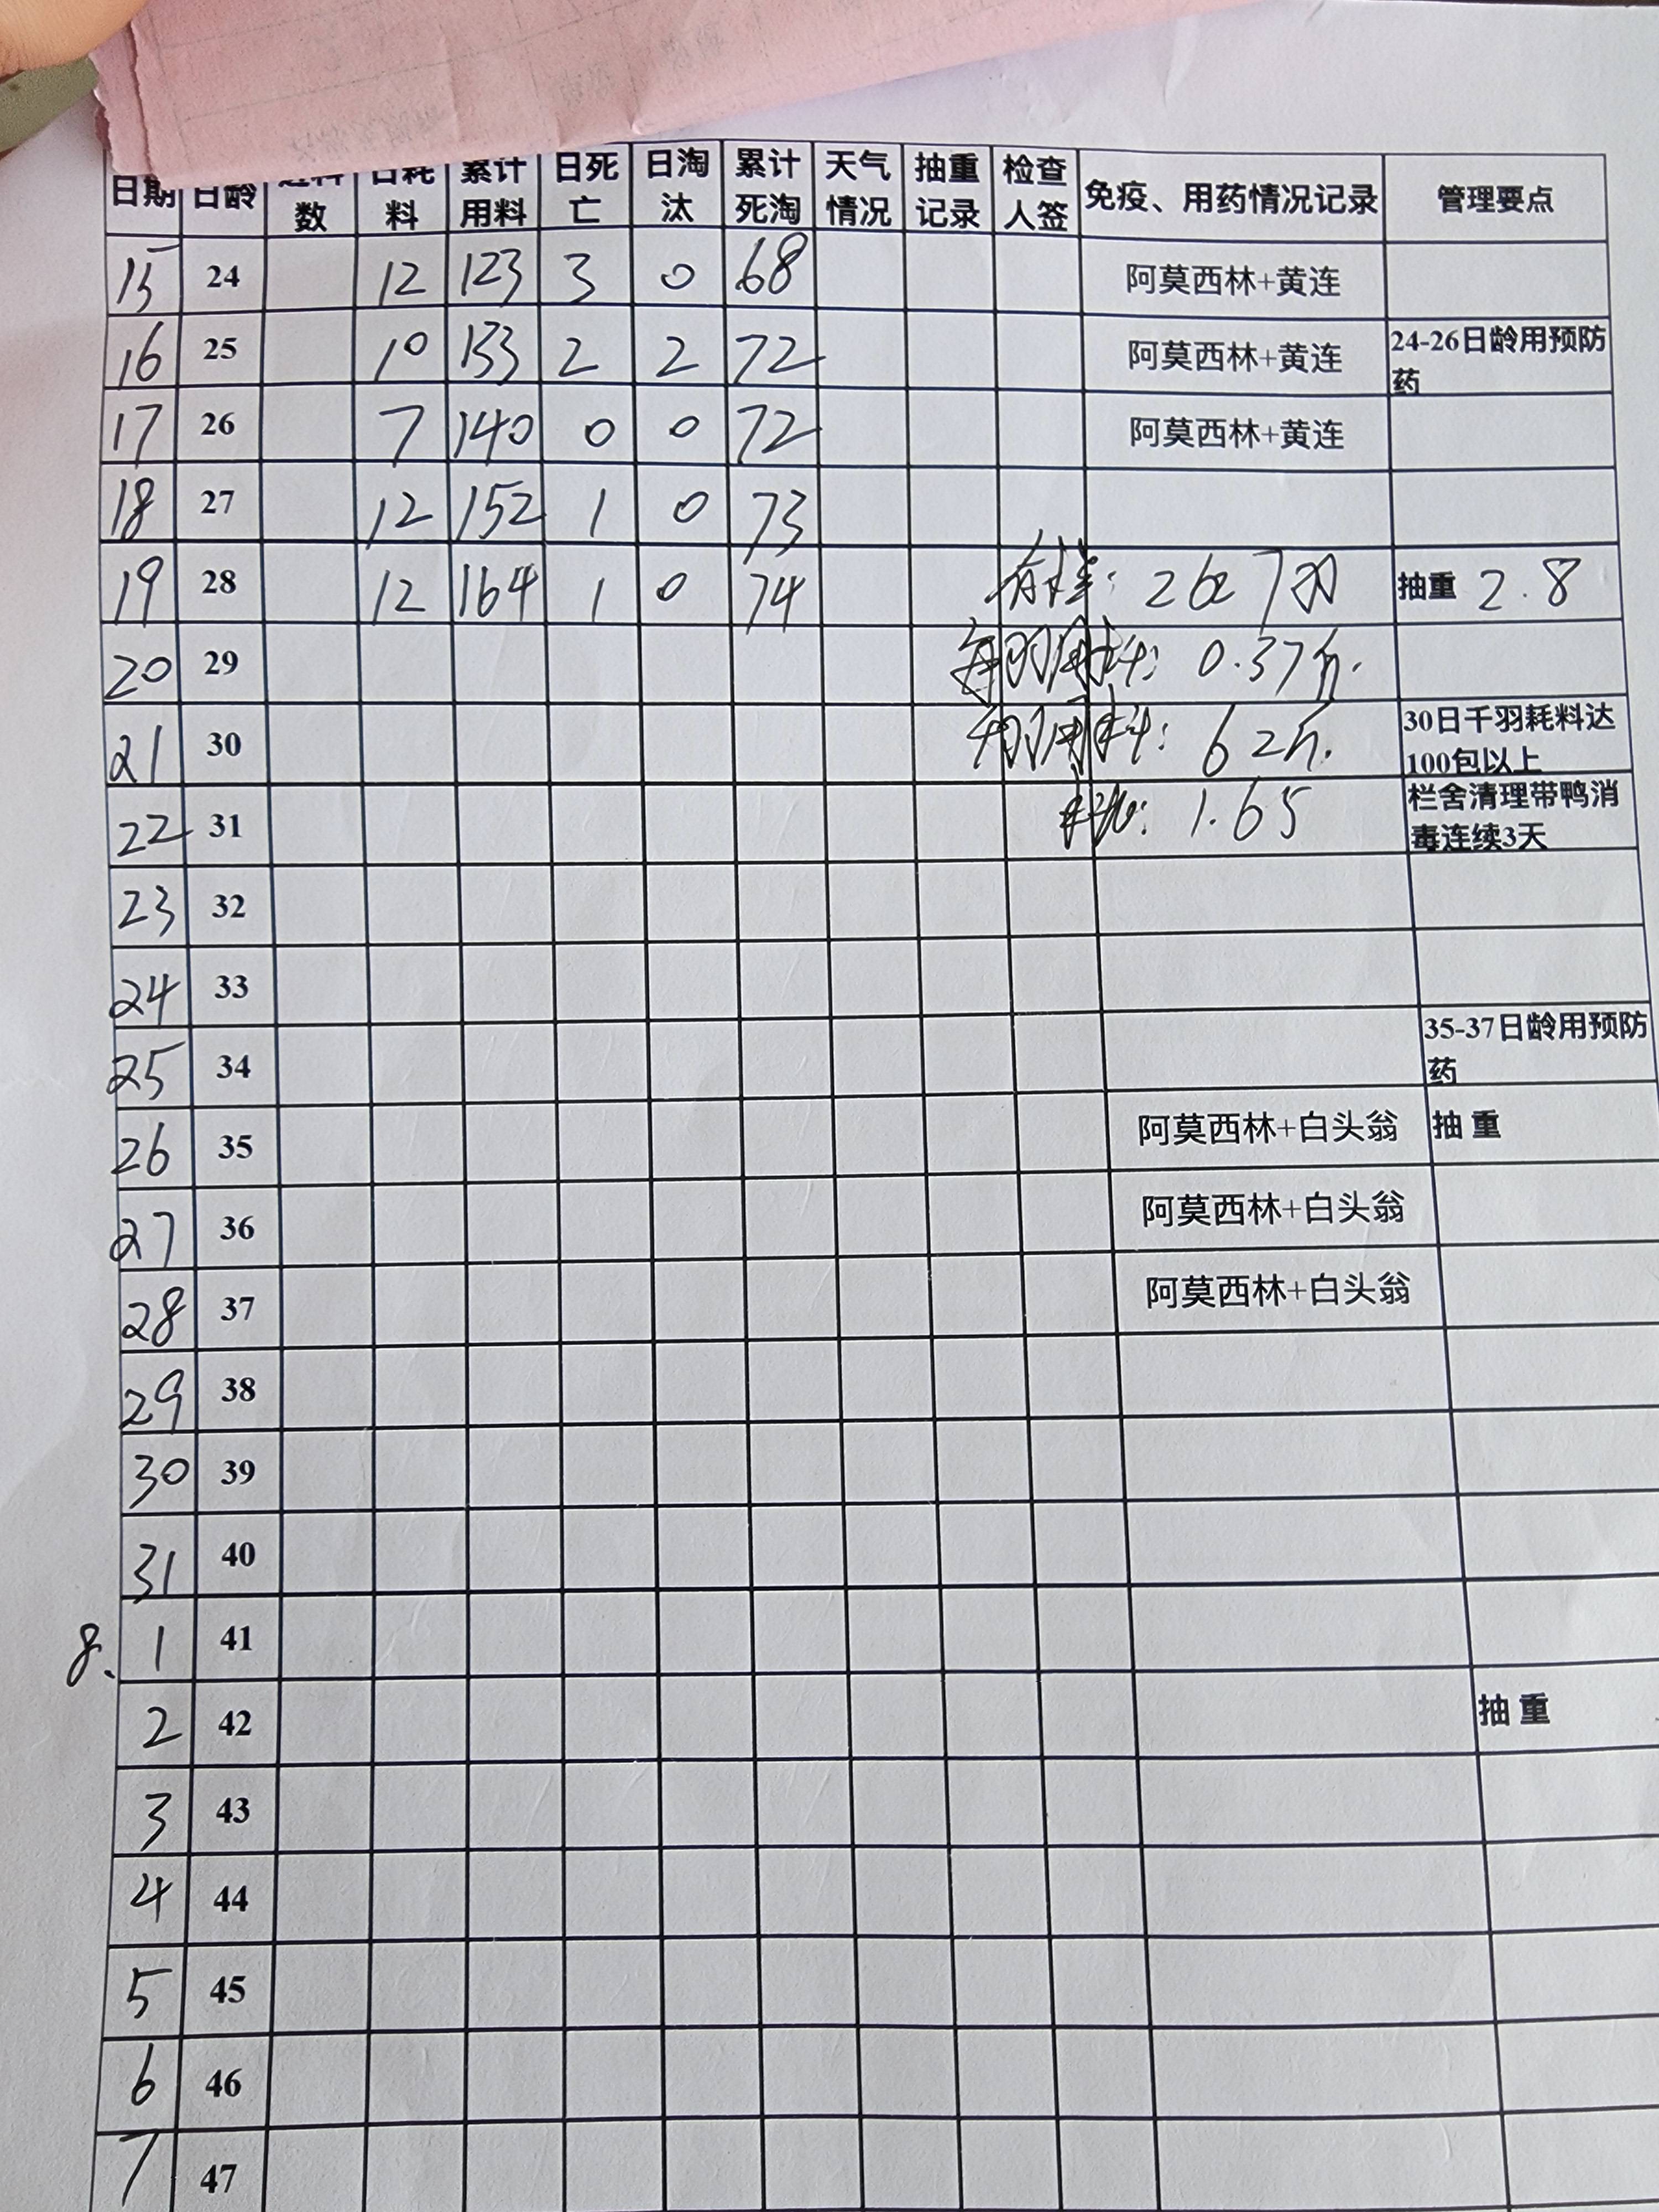 日期 日龄 数 日耗料 累计用料 日死亡 日淘汰 累计死淘 天气情况 抽重记录 检查人签 免疫、用药情况记录 管理要点
15 24 12 123 3 0 68 阿莫西林+黄连
16 25 10 133 2 2 72 阿莫西林+黄连 24-26日龄用预防药
17 26 7 140 0 0 72 阿莫西林+黄连
18 27 12 152 1 0 73
19 28 12 164 1 0 74 存栏: 抽重 2.8
20 29 每羽用料: 0.37斤.
21 30 62斤. 30日千羽耗料达100包以上
22 31 料比: 1.65 栏舍清理带鸭消毒连续3天
23 32
24 33
25 34 35-37日龄用预防药
26 35 阿莫西林+白头翁 抽 重
27 36 阿莫西林+白头翁
28 37 阿莫西林+白头翁
29 38
30 39
31 40
8、1 41
2 42 抽 重
3 43
4 44
5 45
6 46
7 47